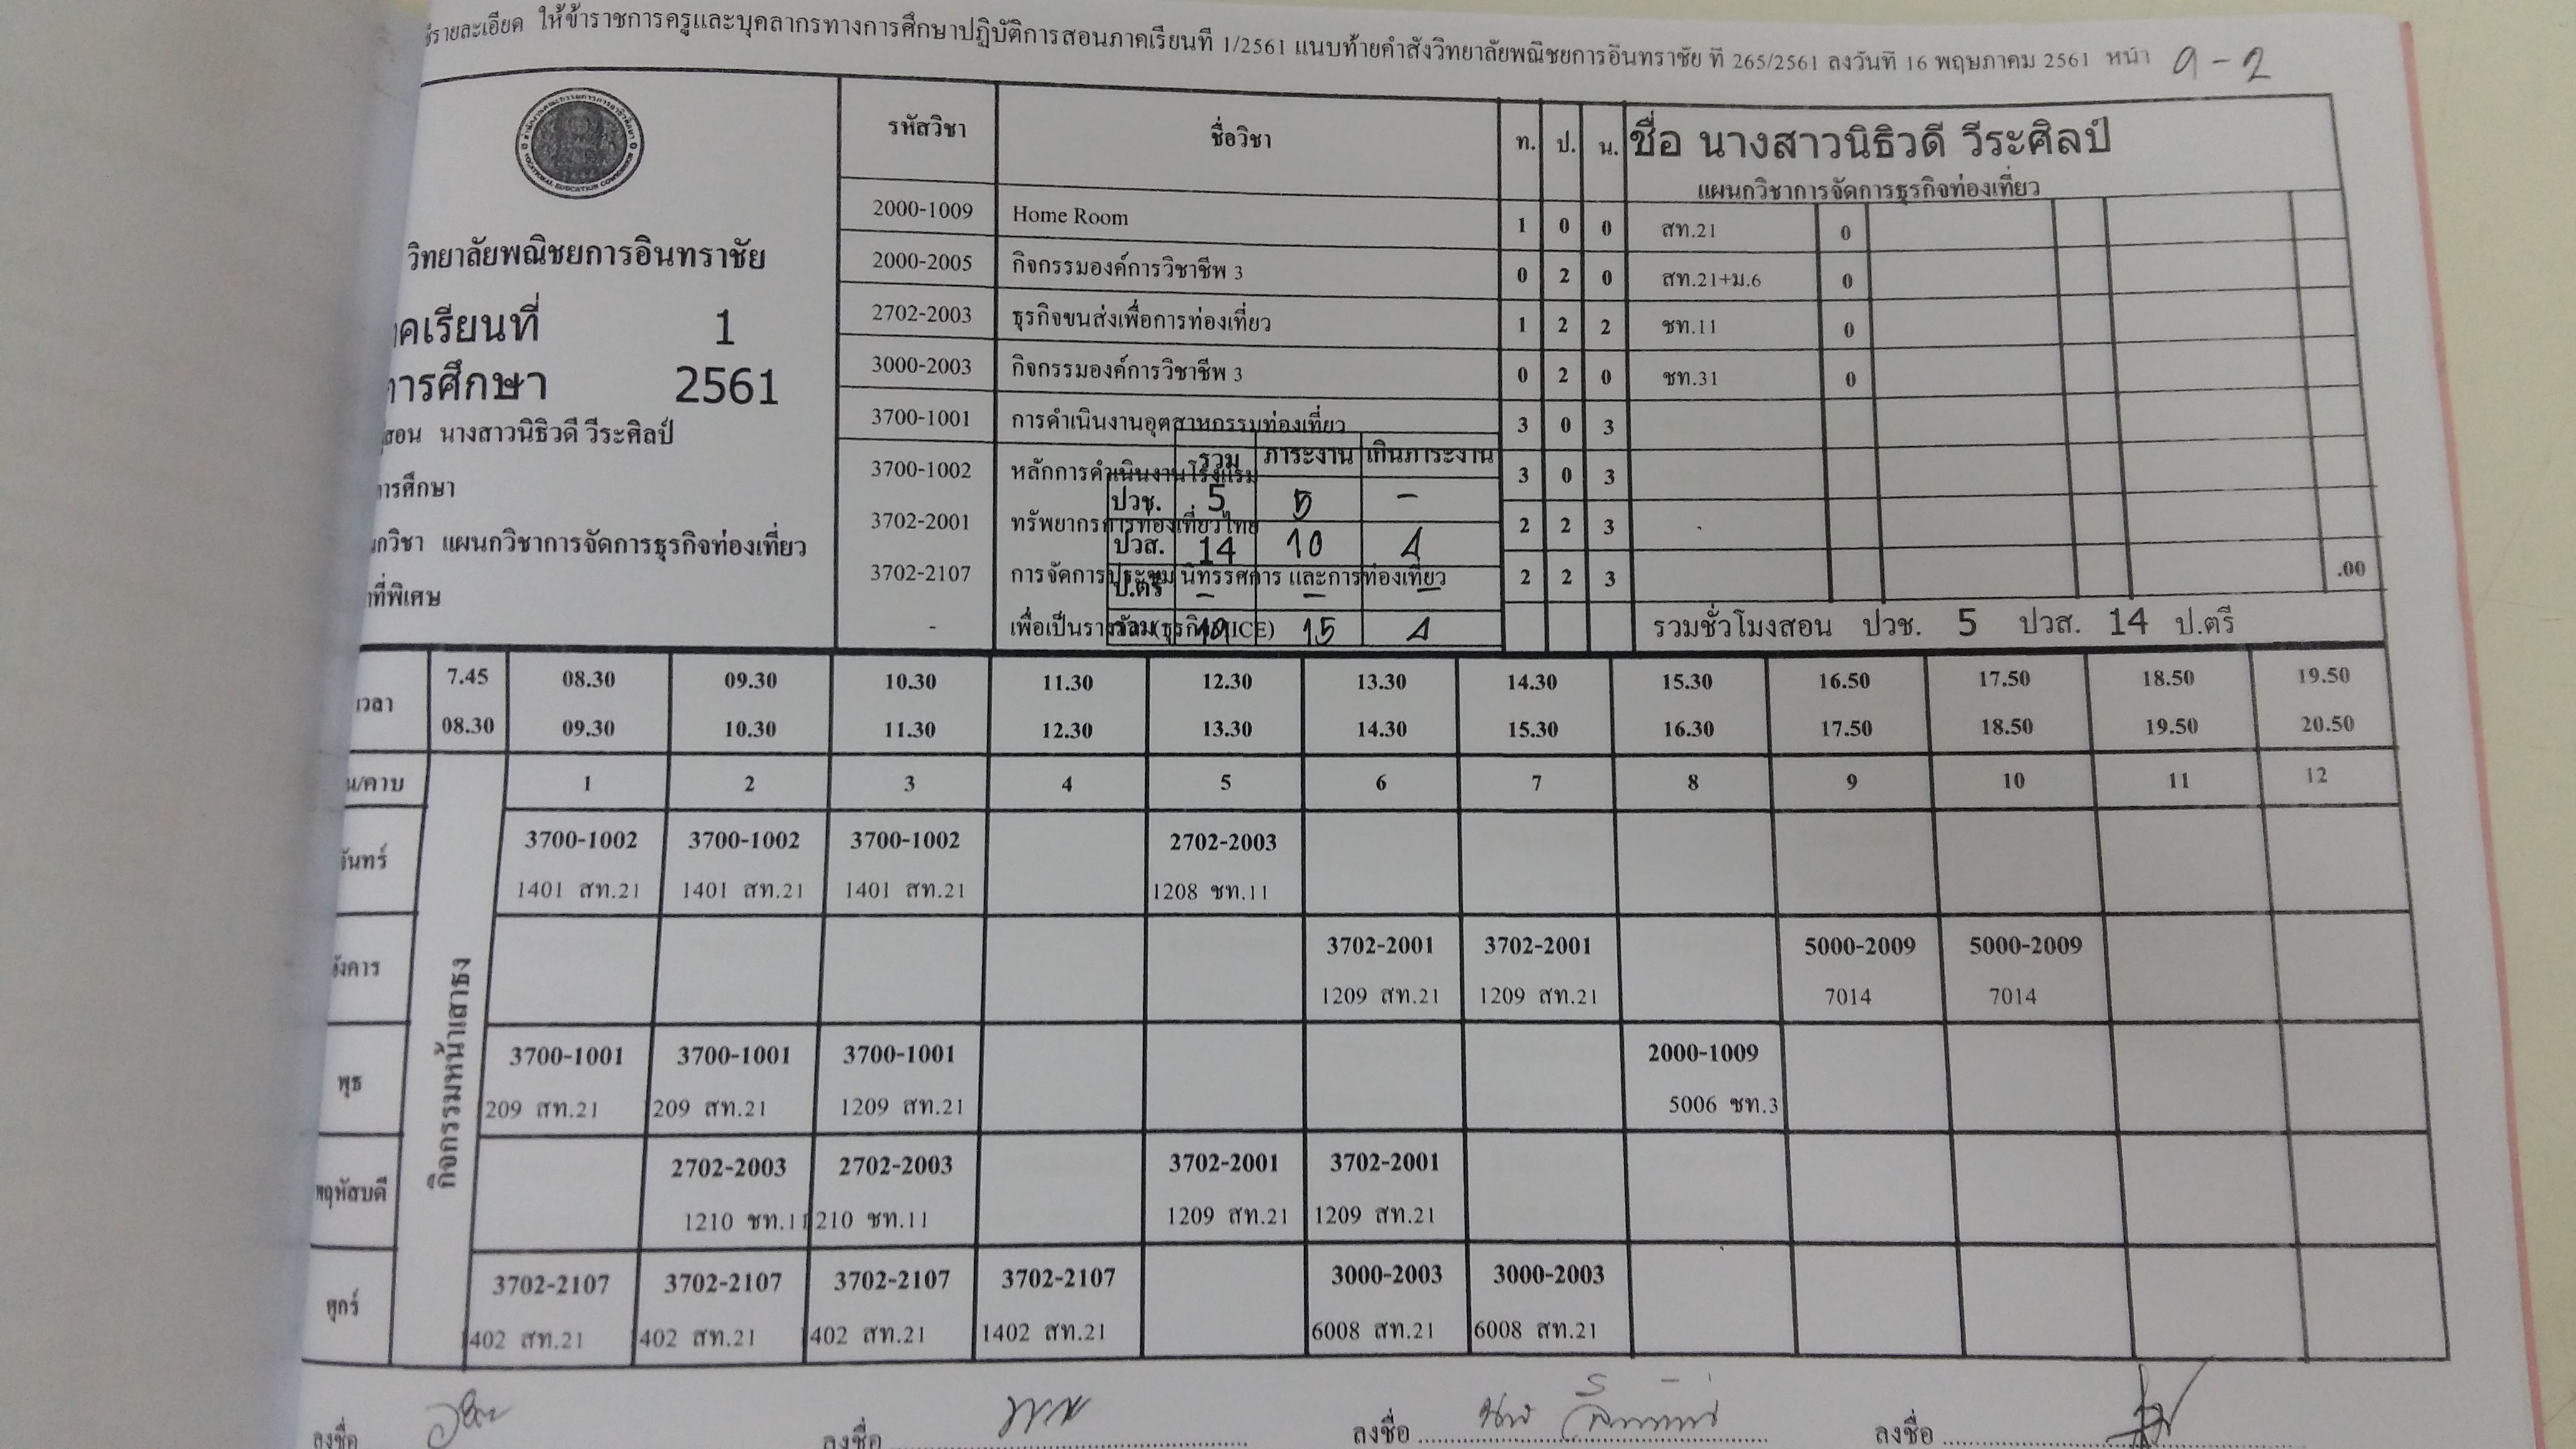 รายละเอียด ให้ข้าราชการครูและบุคลากรทางการศึกษาปฏิบัติการสอนภาคเรียนที่ 1/2561 แนบท้ายคำสั่งวิทยาลัยพณิชยการอินทราชัย ที่ 265/2561 ลงวันที่ 16 พฤษภาคม 2561 หน้า ๑ - 2
รหัสวิชา ชื่อวิชา ท. ป. น. ชื่อ นางสาวนิธิวดี วีระศิลป์
แผนกวิชาการจัดการธุรกิจท่องเที่ยว
2000-1009 Home Room 1 0 0 สท.21 0
วิทยาลัยพณิชยการอินทราชัย
2000-2005 กิจกรรมองค์การวิชาชีพ 3 0 2 0 สท.21+ม.6 0
คเรียนที่ 1
2702-2003 ธุรกิจขนส่งเพื่อการท่องเที่ยว 1 2 2 ชท.11 0
การศึกษา 2561
3000-2003 กิจกรรมองค์การวิชาชีพ 3 0 2 0 ชท.31 0
สอน นางสาวนิธิวดี วีระศิลป์
3700-1001 การดำเนินงานอุตสาหกรรมท่องเที่ยว 3 0 3
รวม ภาระงาน เกินภาระงาน
การศึกษา
3700-1002 หลักการดำเนินงานโรงแรม 3 0 3
ปวช. 5 5 -
3702-2001 ทรัพยากรการท่องเที่ยวไทย 2 2 3
กวิชา แผนกวิชาการจัดการธุรกิจท่องเที่ยว
ปวส. 14 10 4
3702-2107 การจัดการประชุม นิทรรศการ และการท่องเที่ยว 2 2 3 .00
ป.ตรี - - -
ที่พิเศษ
- เพื่อเป็นรางวัล(ธุรกิจ MICE)
รวม 19 15 4
รวมชั่วโมงสอน ปวช. 5 ปวส. 14 ป.ตรี
เวลา 7.45 08.30 09.30 10.30 11.30 12.30 13.30 14.30 15.30 16.50 17.50 18.50 19.50
08.30 09.30 10.30 11.30 12.30 13.30 14.30 15.30 16.30 17.50 18.50 19.50 20.50
น/คาบ 1 2 3 4 5 6 7 8 9 10 11 12
กิจกรรมหน้าเสาธง
จันทร์ 3700-1002 3700-1002 3700-1002 2702-2003
1401 สท.21 1401 สท.21 1401 สท.21 1208 ชท.11
อังคาร 3702-2001 3702-2001 5000-2009 5000-2009
1209 สท.21 1209 สท.21 7014 7014
พุธ 3700-1001 3700-1001 3700-1001 2000-1009
209 สท.21 209 สท.21 1209 สท.21 5006 ชท.3
พฤหัสบดี 2702-2003 2702-2003 3702-2001 3702-2001
1210 ชท.11 210 ชท.11 1209 สท.21 1209 สท.21
ศุกร์ 3702-2107 3702-2107 3702-2107 3702-2107 3000-2003 3000-2003
402 สท.21 402 สท.21 402 สท.21 1402 สท.21 6008 สท.21 6008 สท.21
ลงชื่อ ลงชื่อ ลงชื่อ ลงชื่อ